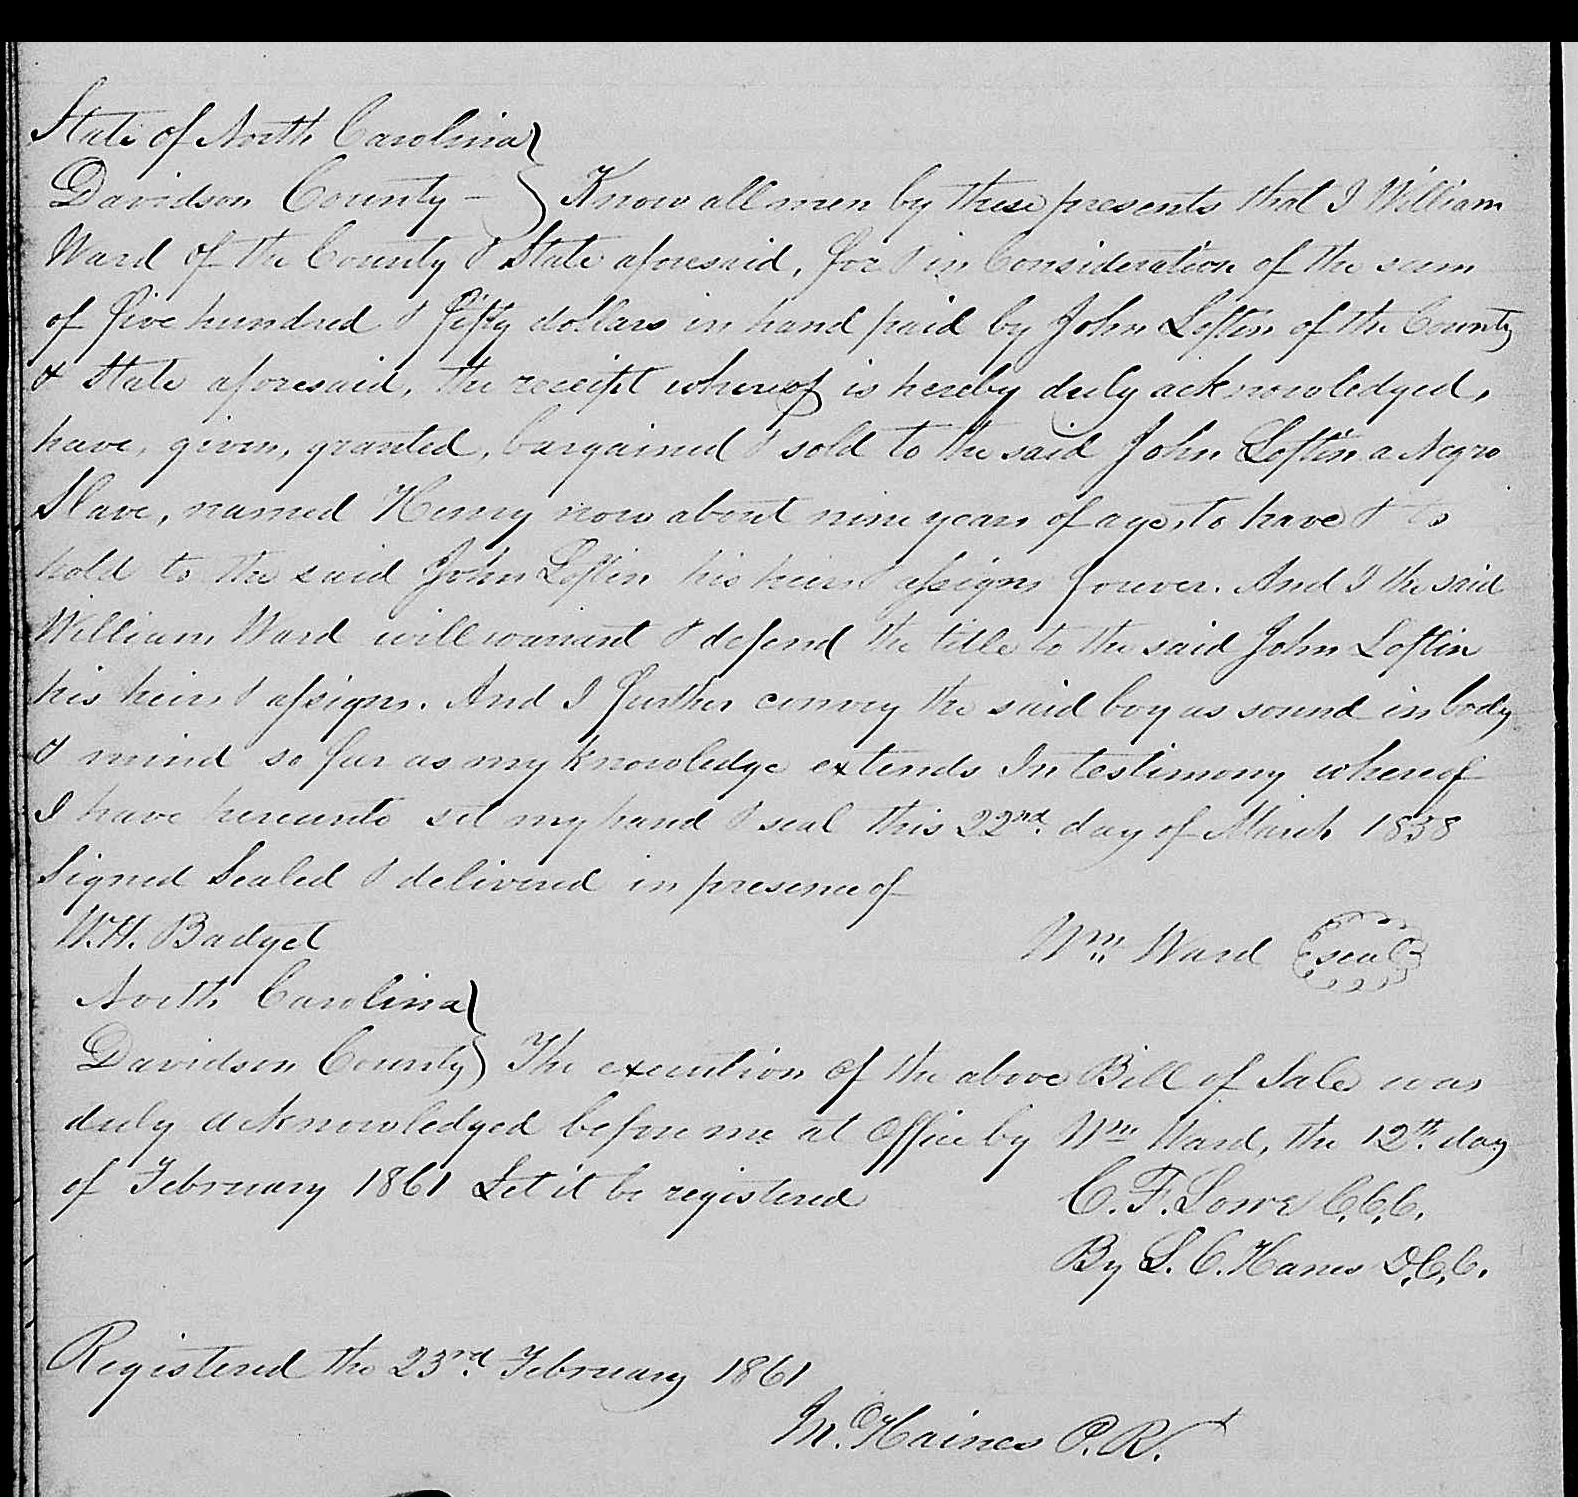 State of North Carolina }
Davidson County – } Know all men by these presents that I William
Ward of the County & State aforesaid, for & in Consideration of the sum
of five hundred & fifty dollars in hand paid by John Loftin of the County
& State aforesaid, the receipt whereof is hereby duly acknowledged,
have, given, granted, bargained & sold to the said John Loftin a Negro
Slave, named Henry now about nine years of age, to have & to
hold to the said John Loftin his heirs & assigns forever. And I the said
William Ward will warrant & defend the title to the said John Loftin
his heirs & assigns. And I further convey the said boy as sound in body
& mind so far as my knowledge extends In testimony whereof
I have hereunto set my hand & seal this 22nd. day of March 1858
Signed Sealed & delivered in presence of
W.H. Badget
Wm. Ward seal
North Carolina }
Davidson County } The execution of the above Bill of Sale was
duly acknowledged before me at Office by Wm. Ward, the 12th. day
of February 1861 Let it be registered
C. F. Lowe C.C.C.
By L. C. Hanes D.C.C.
Registered the 23rd. February 1861
Haines P.R.